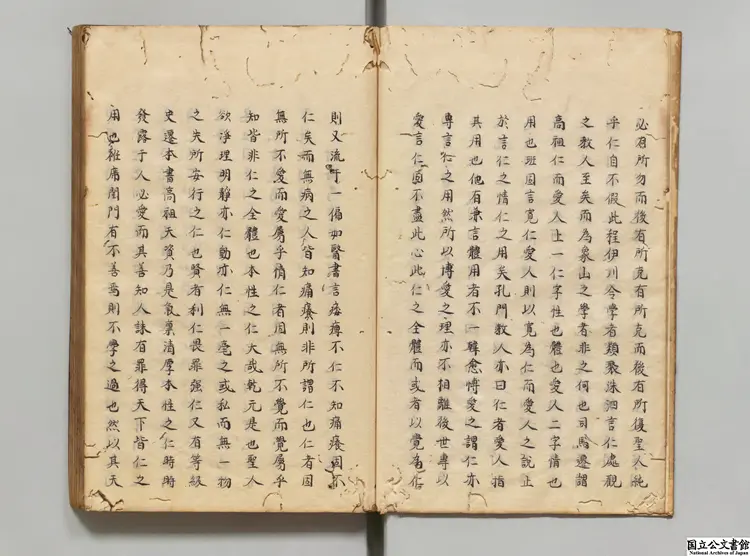 必有所勿而後有所克有所克而後有所復聖人純
乎仁自不假此程伊川令學者類聚洙泗言仁處觀
之教人至矣而為象山之學者非之何也司馬遷謂
高祖仁而愛人上一仁字性也體也愛人二字情也
用也班固言寬仁愛人則以寬為仁而愛人之說止
於言仁之情仁之用矣孔門教人亦曰仁者愛人指
其用也他有兼言體用者不一韓愈博愛之謂仁亦
專言仁之用然所以博愛之理亦不相離後世專以
愛言仁固不盡此心此仁之全體而或者以覺為仁
則又流于一偏如醫書言痿痺不仁不知痛癢固不
仁矣而無病之人皆知痛癢則非所謂仁也仁者固
無所不愛而愛屬乎情仁者固無所不覺而覺屬乎
知皆非仁之全體也本性之仁大哉乾元是也聖人
欲淨理明靜亦仁動亦仁無一毫之或私而無一物
之失所安行之仁也賢者利仁畏罪強仁又有等級
史遷本書高祖天資乃是氣稟清厚本性之仁時時
發露于人必愛而其善知人誅有罪得天下皆仁之
用也袵席閨門有不善焉則不學之過也然以其天
国立公文書館
National Archives of Japan